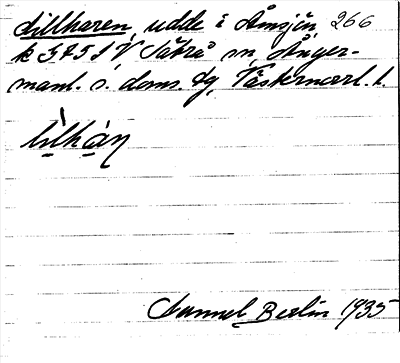 Lillharen, udde i Åmsjön, 266
k 575 1 V Sätrå m, Ånger-
manl. s. doms. tg, Västernorrl. l.
lìlhàn
Samuel Berlin 1935